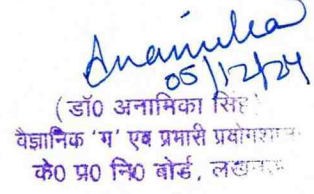 Anamika
05/12/24
(डॉ0 अनामिका सिंह)
वैज्ञानिक 'ग' एवं प्रभारी
के0 प्र0 नि0 बोर्ड, लखनऊ